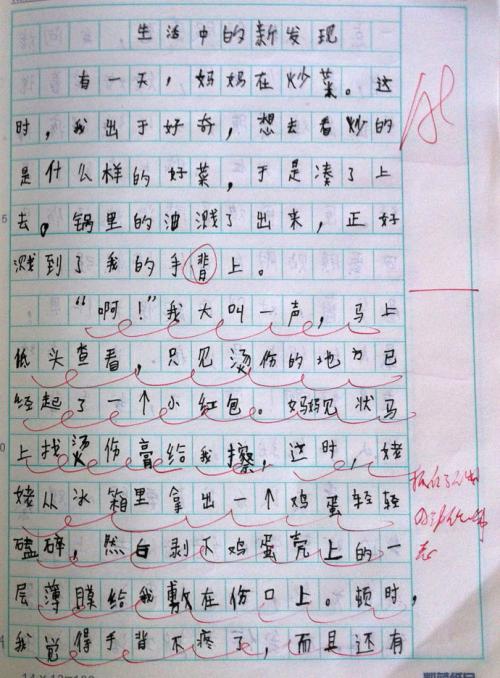 生活中的新发现
有一天,妈妈在炒菜。这
时,我出于好奇,想去看炒的
是什么样的好菜,于是凑了上
去。锅里的油溅了出来,正好
溅到了我的手背上。
“啊!”我大叫一声,马上
低头查看,只见烫伤的地方已
经起了一个小红包。妈妈见状马
上找烫伤膏给我擦,这时,姥
姥从冰箱里拿出一个鸡蛋轻轻
磕碎,然后剥下鸡蛋壳上的一
层薄膜给我敷在伤口上。顿时,
我觉得手背不疼了,而且还有
5